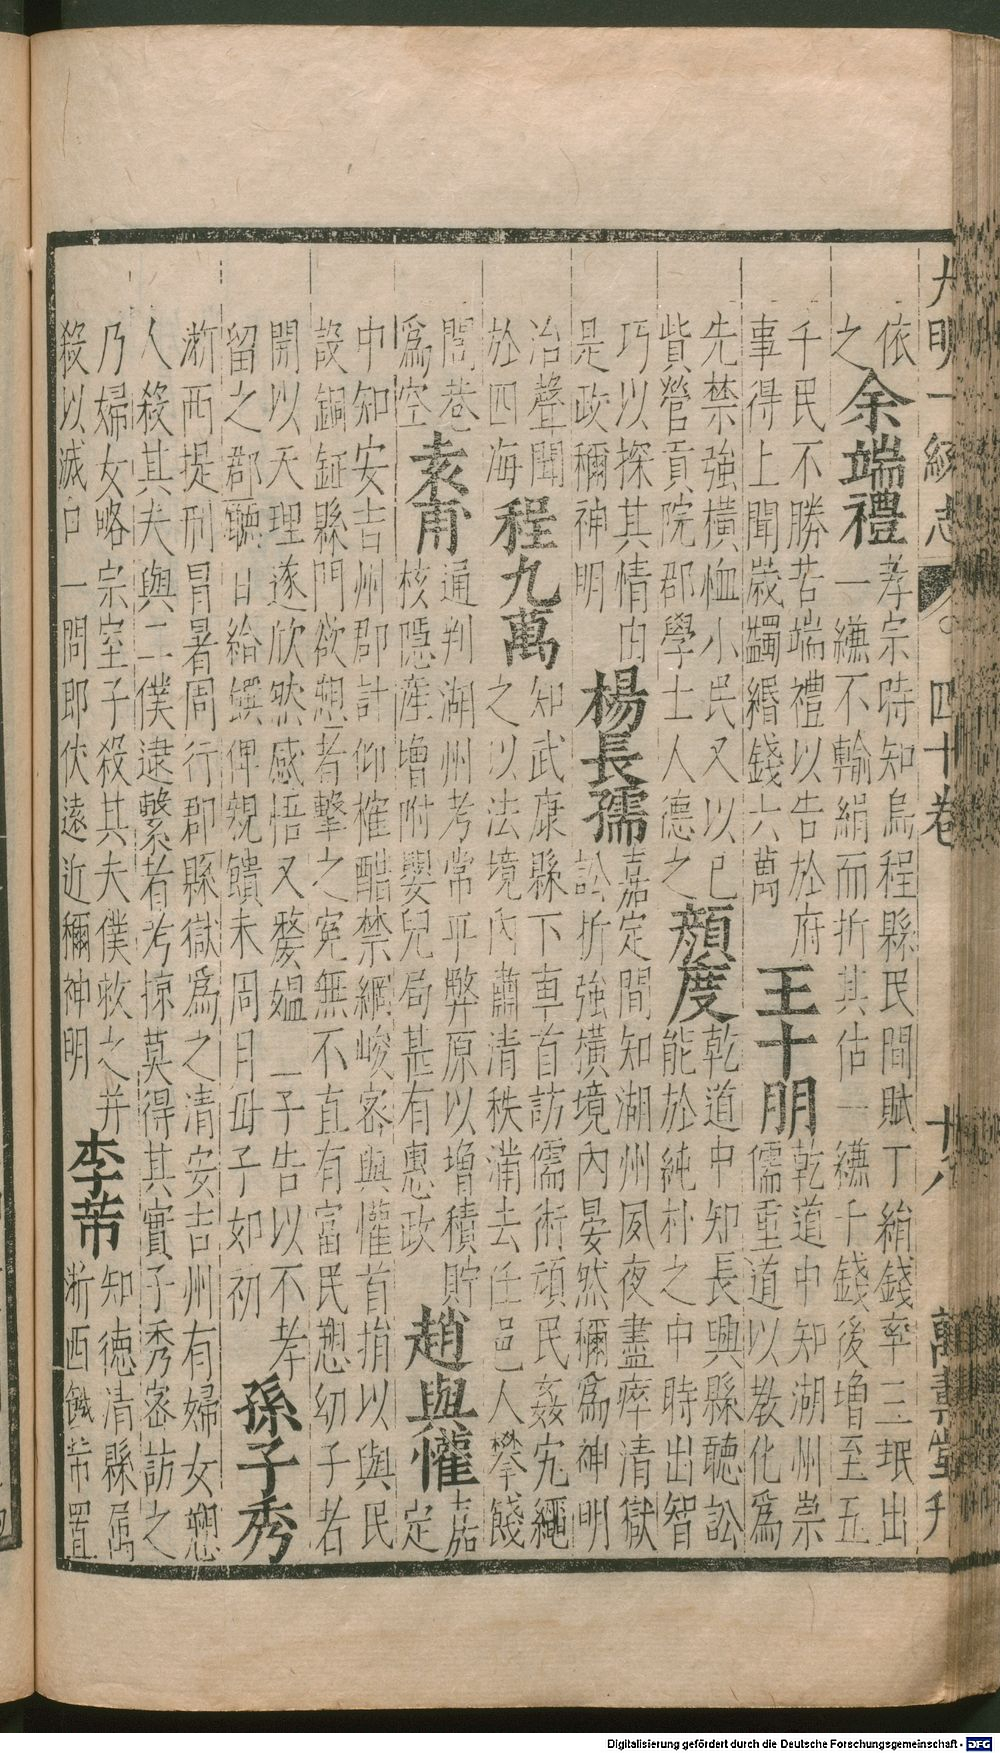 大明一統志 四十卷 廿八 萬壽堂刊
依之余端禮孝宗時知烏程縣民間賦丁絹錢率三氓出一縑不輸絹而折其估一縑千錢後增至五
千民不勝苦端禮以告於府事得上聞歲蠲緡錢六萬王十朋乾道中知湖州崇儒重道以教化為
先禁強橫恤小民又以已貲營貢院郡學士人德之顏度乾道中知長興縣聽訟能於純朴之中時出智
巧以探其情由是政稱神明楊長孺嘉定間知湖州夙夜盡瘁清獄訟折強橫境內晏然稱為神明
冶聲聞於四海程九萬知武康縣下車首訪儒術頑民姦宄繩之以法境內肅清秩滿去任邑人攀餞
閭巷為空袁甫通判湖州考常平弊原以增積貯核隱產增附嬰兒局甚有惠政趙與懽嘉定
中知安吉州郡計仰榷酷禁網峻密與懽首捐以與民設銅鉦縣門欲愬者擊之冤無不直有富民愬幼子者
開以天理遂欣然感悟又嫠媼一子告以不孝留之郡聽日給饌俾親饋未周月母子如初孫子秀
淅西提刑冒暑周行郡縣獄為之清安吉州有婦女愬人殺其夫與二僕逮繫者考掠莫得其實子秀密訪之
乃婦女賂宗室子殺其夫僕救之并殺以滅口一問即伏遠近稱神明李芾知德清縣屬淅西饑芾置
Digitalisierung gefördert durch die Deutsche Forschungsgemeinschaft - DFG